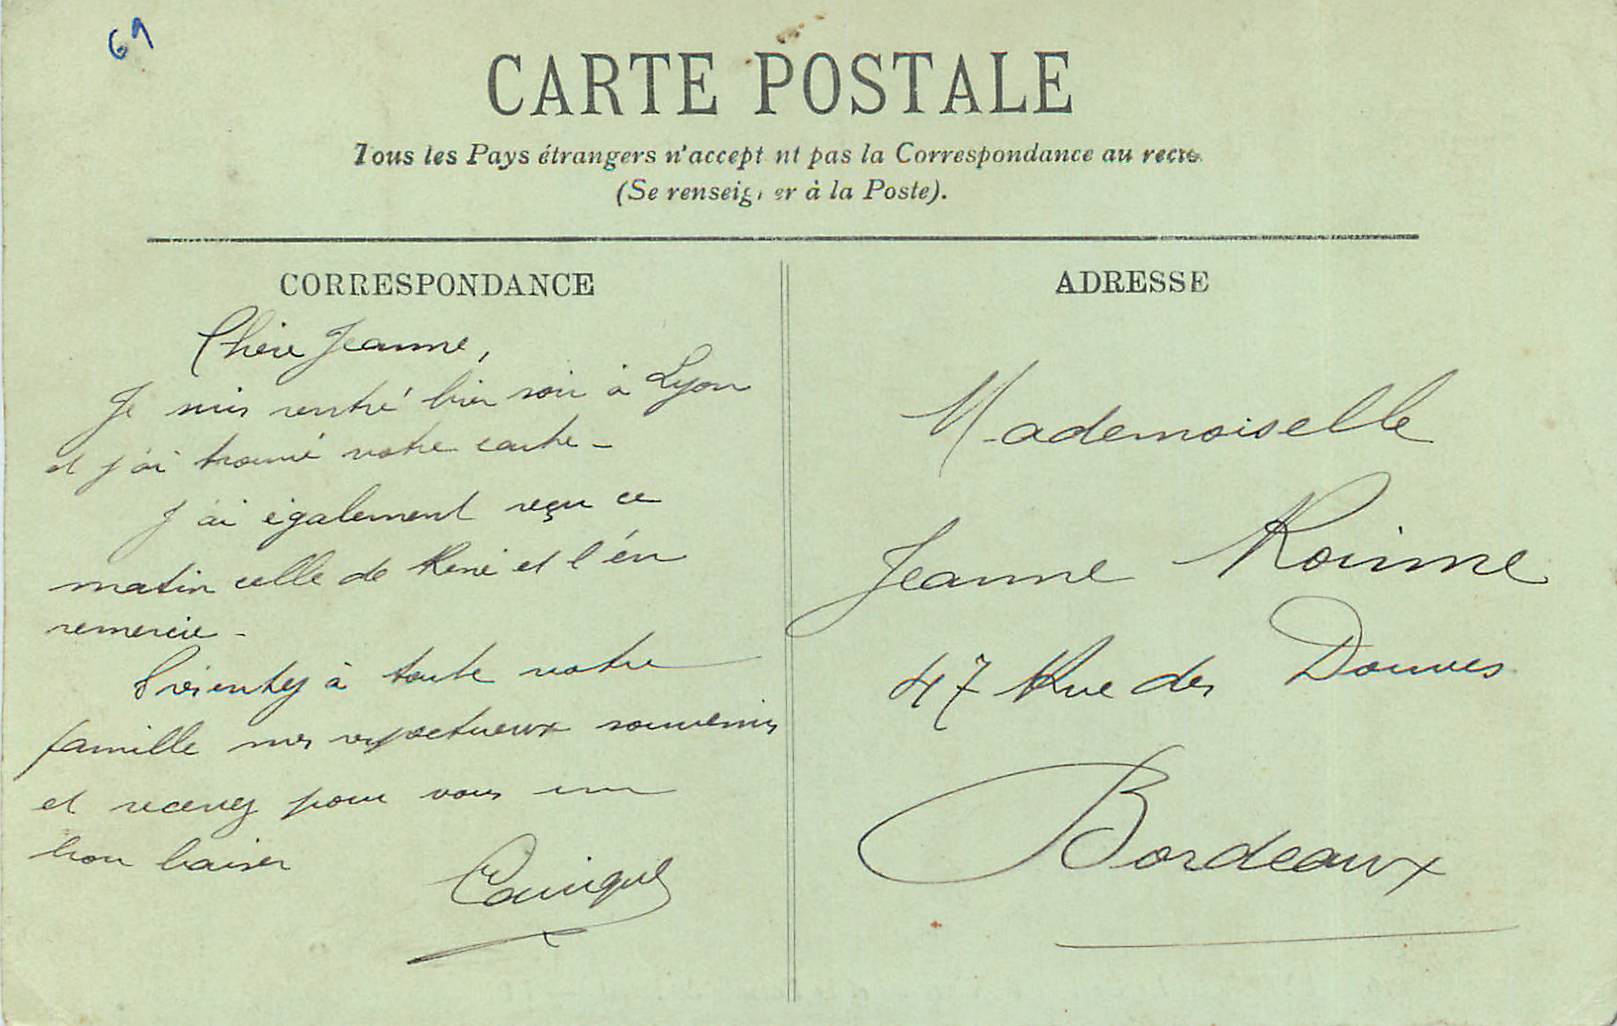 69
CARTE POSTALE
Tous les Pays étrangers n'accept nt pas la Correspondance au recto
(Se renseigner à la Poste).
CORRESPONDANCE
Chère Jeanne,
Je suis rentré hier soir à Lyon
et j'ai trouvé votre carte -
J'ai également reçu ce
matin celle de René et l'en
remercie -
Présentez à toute votre
famille mes respectueux souvenirs
et recevez pour vous un
bon baiser
ADRESSE
Mademoiselle
Jeanne
47 Rue des Douves
Bordeaux